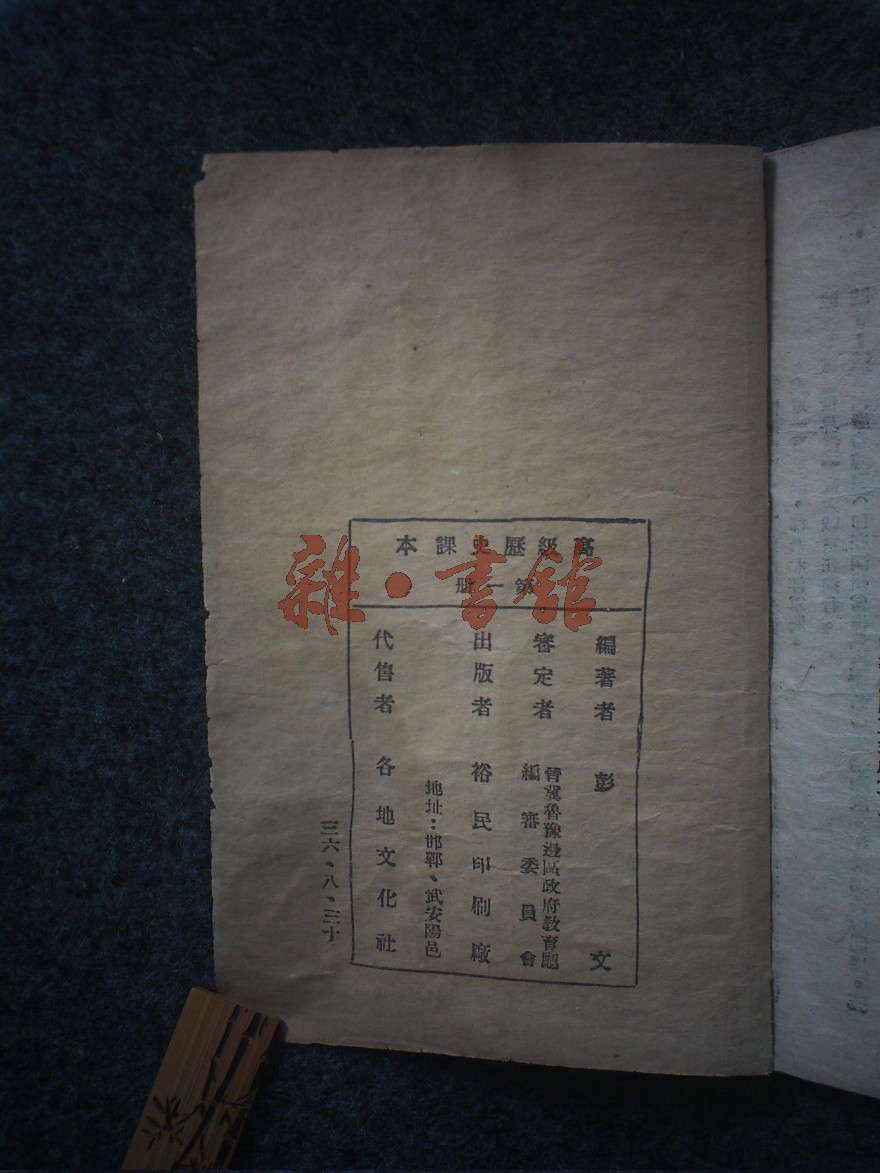 高級歷史課本
第一册
編著者　彭文
審定者　晉冀魯豫邊區政府敎育廳
編審委員會
出版者　裕民印刷廠
地址：邯鄲、武安陽邑
代售者　各地文化社
三六、八、三十
雜·書館